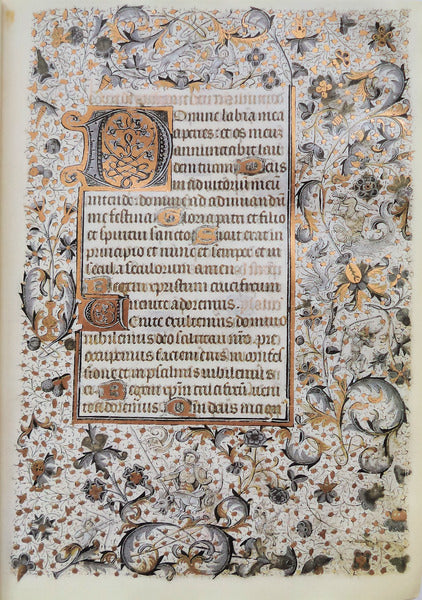 Domine labia mea
aperies: et os meu
nunciabit lau
dem tuam Deus
in adiutoriu meu
intende: domine ad adiuuandu
me festina Gloria patri et filio
et spiritui sancto Sicut erat in
principio et nunc et semper et in
secula seculorum amen
Regem xpistum crucifixum
venite adoremus
Venite exultemus domino
iubilemus deo salutari nro: pre
occupemus faciem eius in confes
sione et in psalmis iubilemus ei
Regem xpm crucifixu veni
te adoremus Qm deus magn